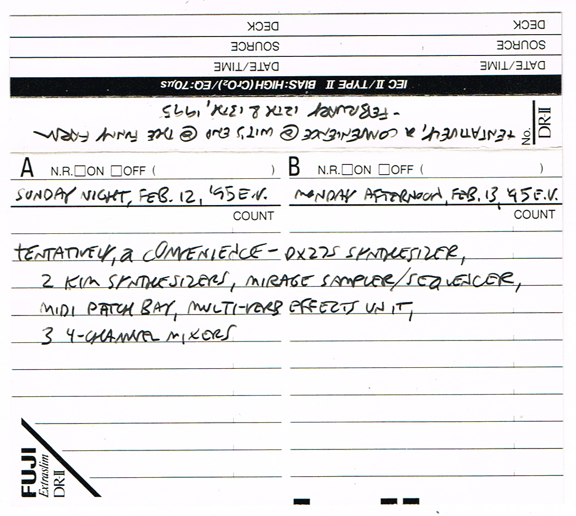 DECK DECK
SOURCE SOURCE
DATE/TIME DATE/TIME
IEC II/TYPE II BIAS:HIGH(CrO₂)/EQ:70µs
TENTATIVELY, a CONVENIENCE @ WIT'S END @ THE FUNNY FARM
- FEBRUARY 12TH & 13TH, 1995
No. DR-II
A N.R.□ON □OFF ( ) B N.R.□ON □OFF ( )
SUNDAY NIGHT, FEB. 12, '95 E.V. MONDAY AFTERNOON, FEB. 13, '95 E.V.
COUNT COUNT
tENTATIVELY, a CONVENIENCE - DX22S SYNTHESIZER,
2 KIM SYNTHESIZERS, MIRAGE SAMPLER/SEQUENCER,
MIDI PATCH BAY, MULTI-VERB EFFECTS UNIT,
3 4-CHANNEL MIXERS
FUJI
Extraslim
DR-II